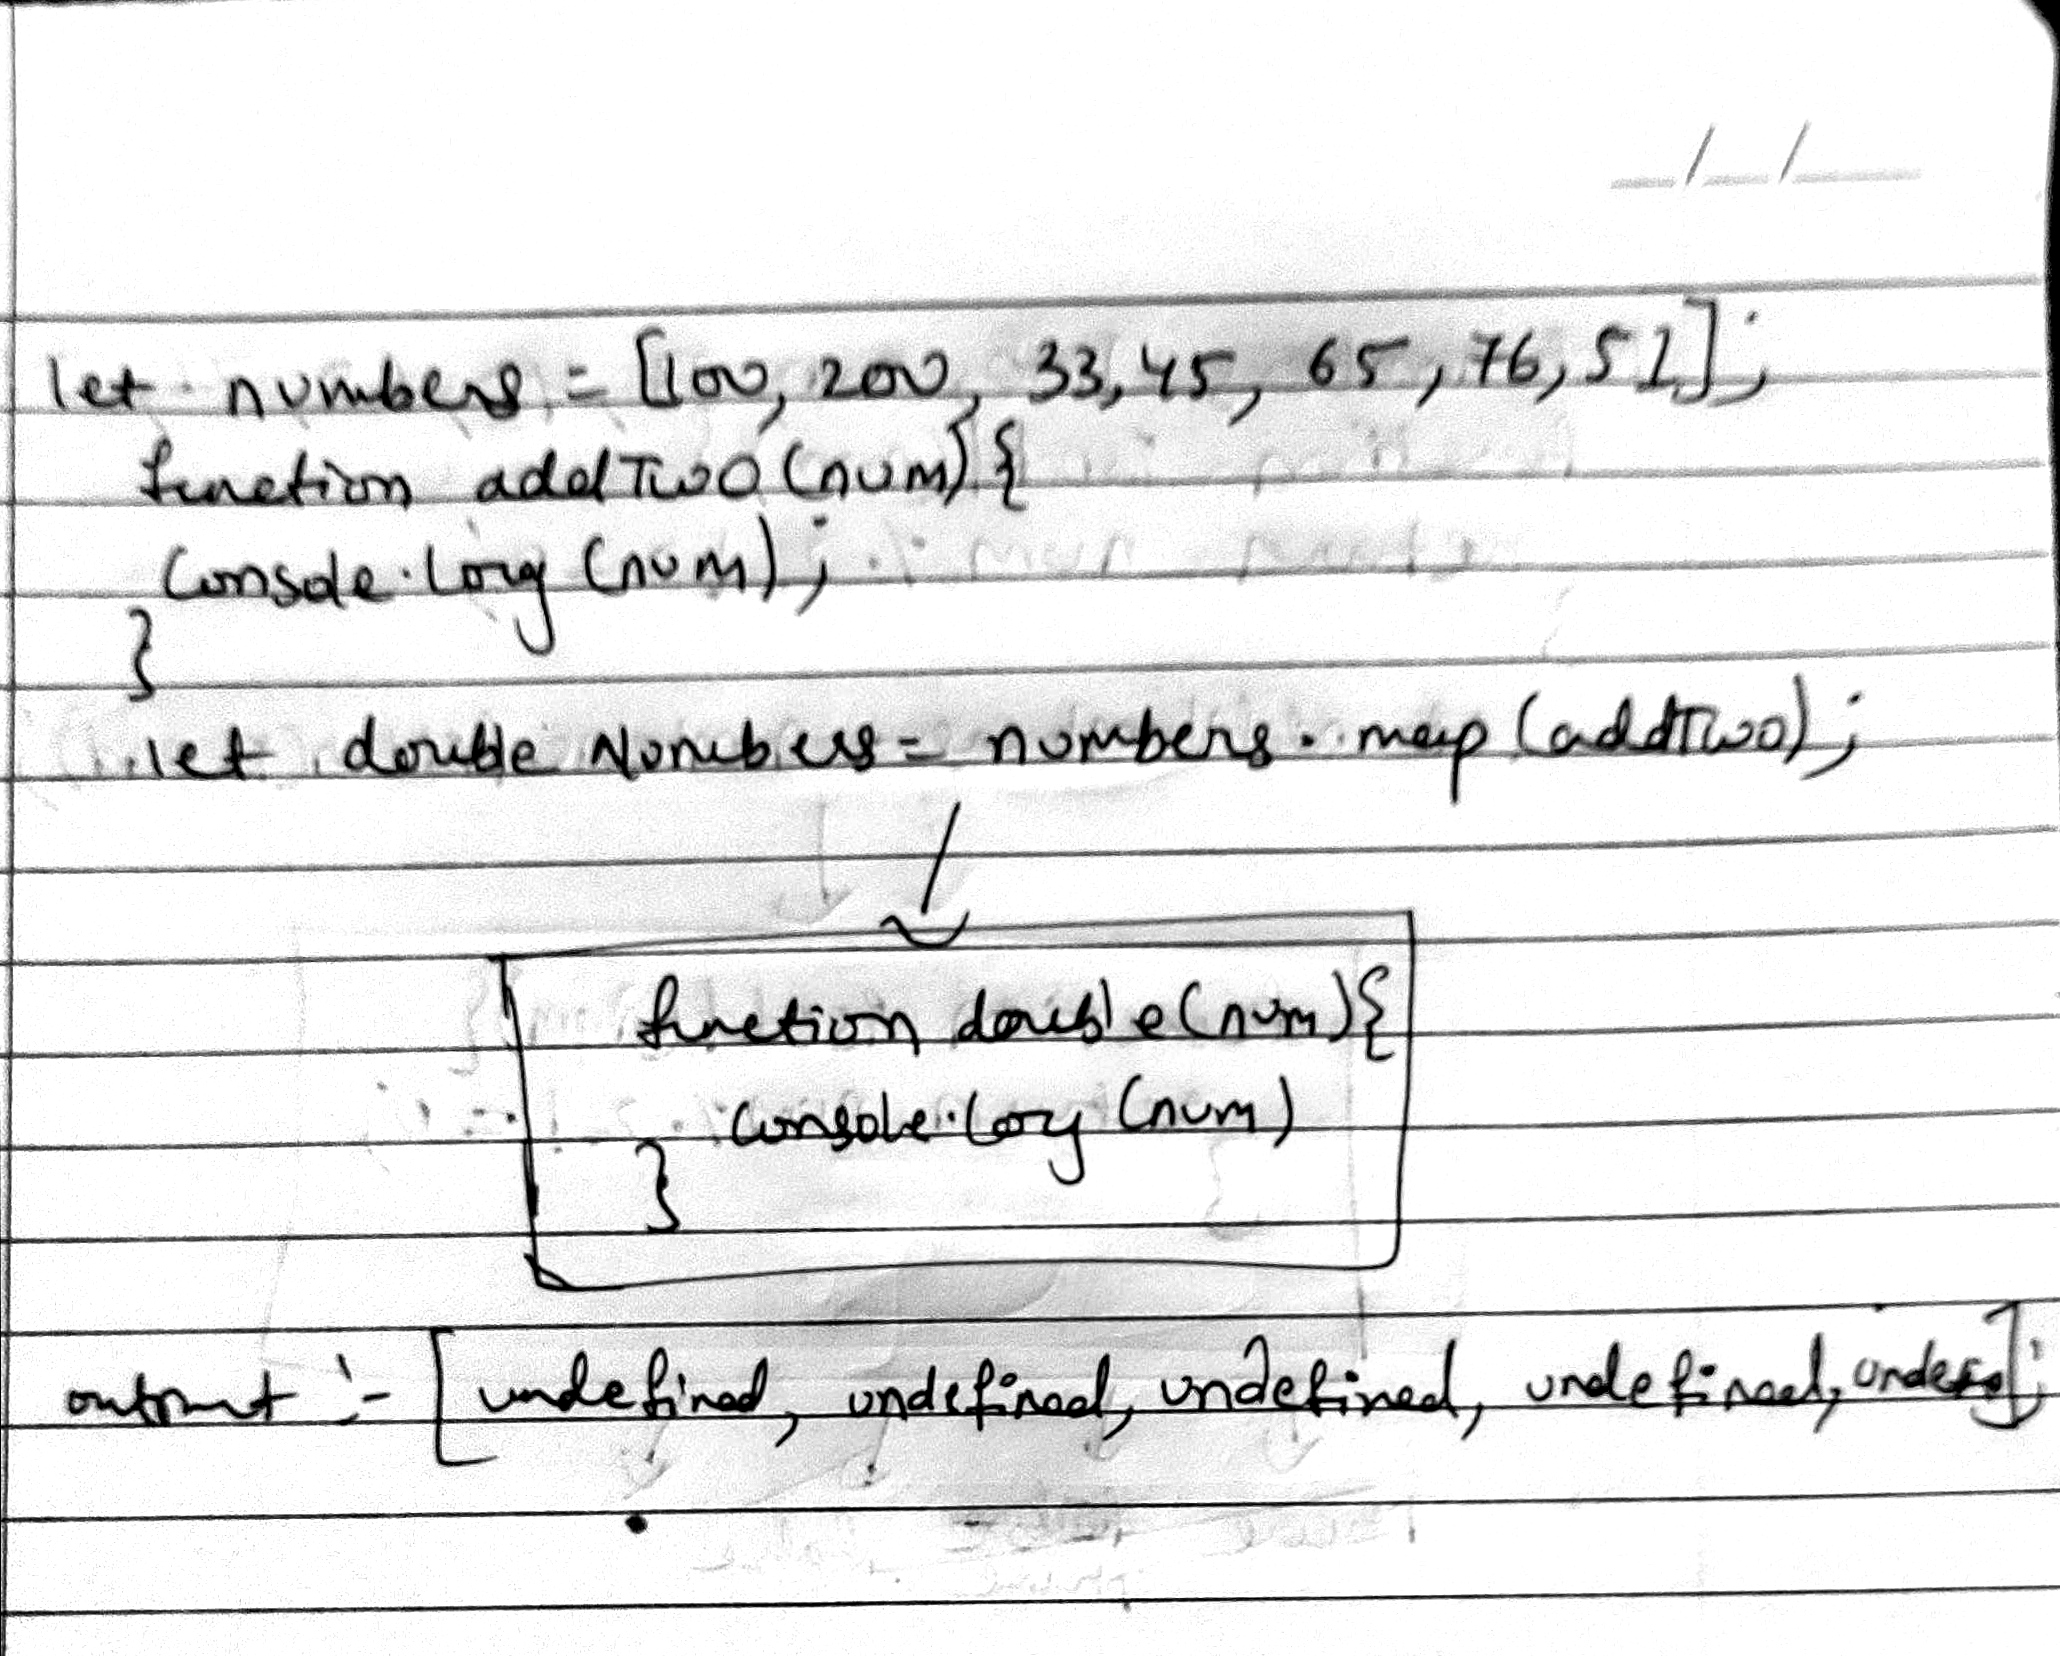 let numbers = [100, 200, 33, 45, 65, 76, 51];
function addTwo (num) {
console.log (num);
}
let double Numbers = numbers. map (addTwo);
function double (num) {
console.log (num)
}
output :- [undefined, undefined, undefined, undefined, undefi];